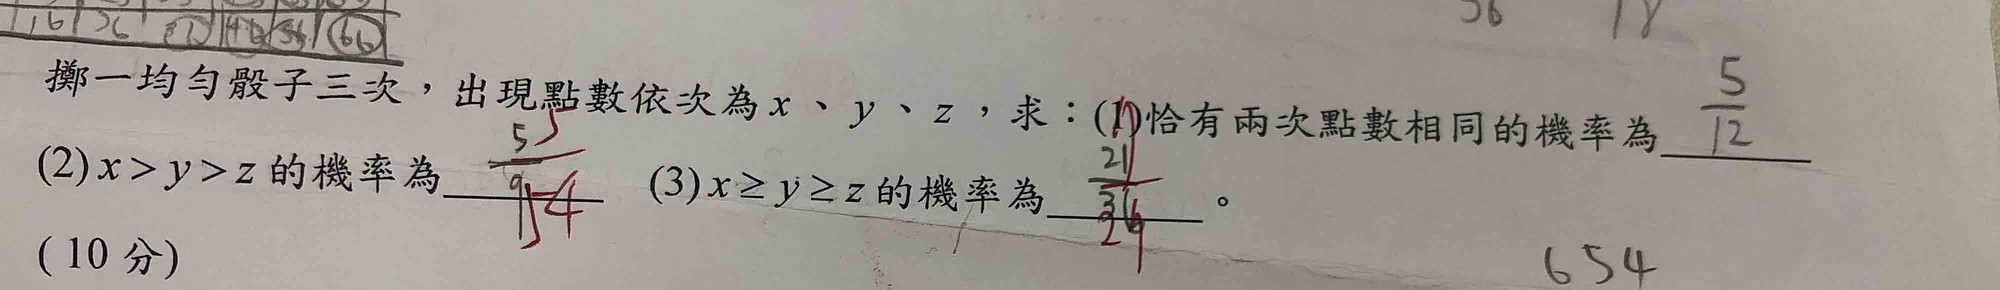 16 26 36 46 56 66
36 18
擲一均勻骰子三次，出現點數依次為 x、y、z，求：(1)恰有兩次點數相同的機率為 5/12
(2) x > y > z 的機率為 5/9 5/54 (3) x ≥ y ≥ z 的機率為 21/36 。
(10 分)
654